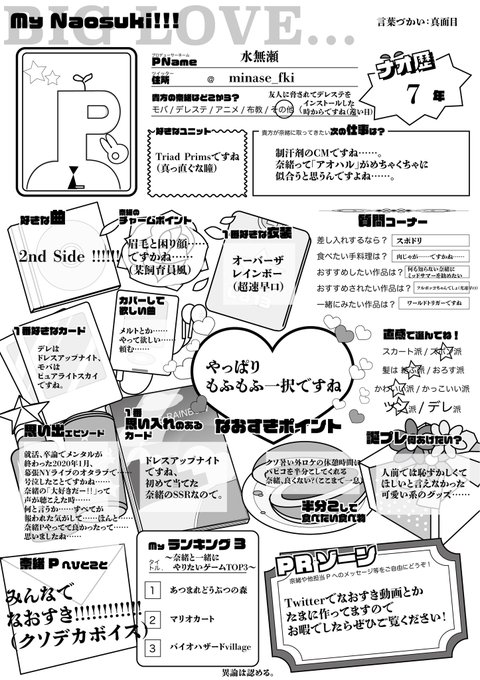 BIG LOVE...
My Naosuki!!!
言葉づかい：真面目
プロデューサーネーム
PName 水無瀬
ツイッター
住所 @ minase_fki
貴方の奈緒はどこから？
モバ / デレステ / アニメ / 布教 / その他
友人に脅されてデレステを
インストールした
時からですね(遠い目)
ナオ歴
7 年
好きなユニット
Triad Primsですね
(真っ直ぐな瞳)
貴方が奈緒に取ってきたい次の仕事は？
制汗剤のCMですね……。
奈緒って「アオハル」がめちゃくちゃに
似合うと思うんですよね……。
好きな曲
2nd Side !!!!!!
奈緒の
チャームポイント
眉毛と困り顔……
ですかね……
(某飼育員風)
1番好きな衣装
オーバーザ
レインボー
(超速早口)
質問コーナー
差し入れするなら？ スポドリ
食べたい手料理は？ 肉じゃが……ですかね……
おすすめしたい作品は？ 何も知らない奈緒に
ミッドサマーを勧めたい
おすすめされたい作品は？
一緒にみたい作品は？ ワールドトリガーですね
1番好きなカード
デレは
ドレスアップナイト、
モバは
ピュアライトスカイ
ですね。
カバーして
欲しい曲
メルトとか……
やって欲しい
頼む……
やっぱり
もふもふ一択ですね
なおすきポイント
直感で選んでね！
スカート派 / ズボン派
髪は 結ぶ派 / おろす派
かわいい派 / かっこいい派
ツン派 / デレ派
思い出エピソード
就活、卒論でメンタルが
終わった2020年1月、
幕張NYライブのオタラブで……
号泣したことですかね……
奈緒の「大好きだー！」って
声が聴こえた時……
何と言うか……すべてが
報われた気がして……ほんと
奈緒Pやってて良かったって……
思いましたね……
1番
思い入れのある
カード
RAINBOW
ドレスアップナイト
ですね、
初めて当てた
奈緒のSSRなので。
クソ暑い外ロケの休憩時間に
パピコを半分こしてくれる
奈緒、良くない？(ここまで一息)
半分こして
食べたい食べ物
誕プレ何あげたい？
人前では恥ずかしくて
ほしいと言えなかった
可愛い系のグッズ……
奈緒Pへひとこと
みんなで
なおすき!!!!!!!!!!!
(クソデカボイス)
My ランキング 3
タイトル、 〜奈緒と一緒に
やりたいゲームTOP3〜
1 あつまれどうぶつの森
2 マリオカート
3 バイオハザードvillage
異論は認める。
PRゾーン
奈緒や他担当Pへのメッセージ等をご自由にどうぞ！
Twitterでなおすき動画とか
たまに作ってますので
お暇でしたらぜひご覧ください！